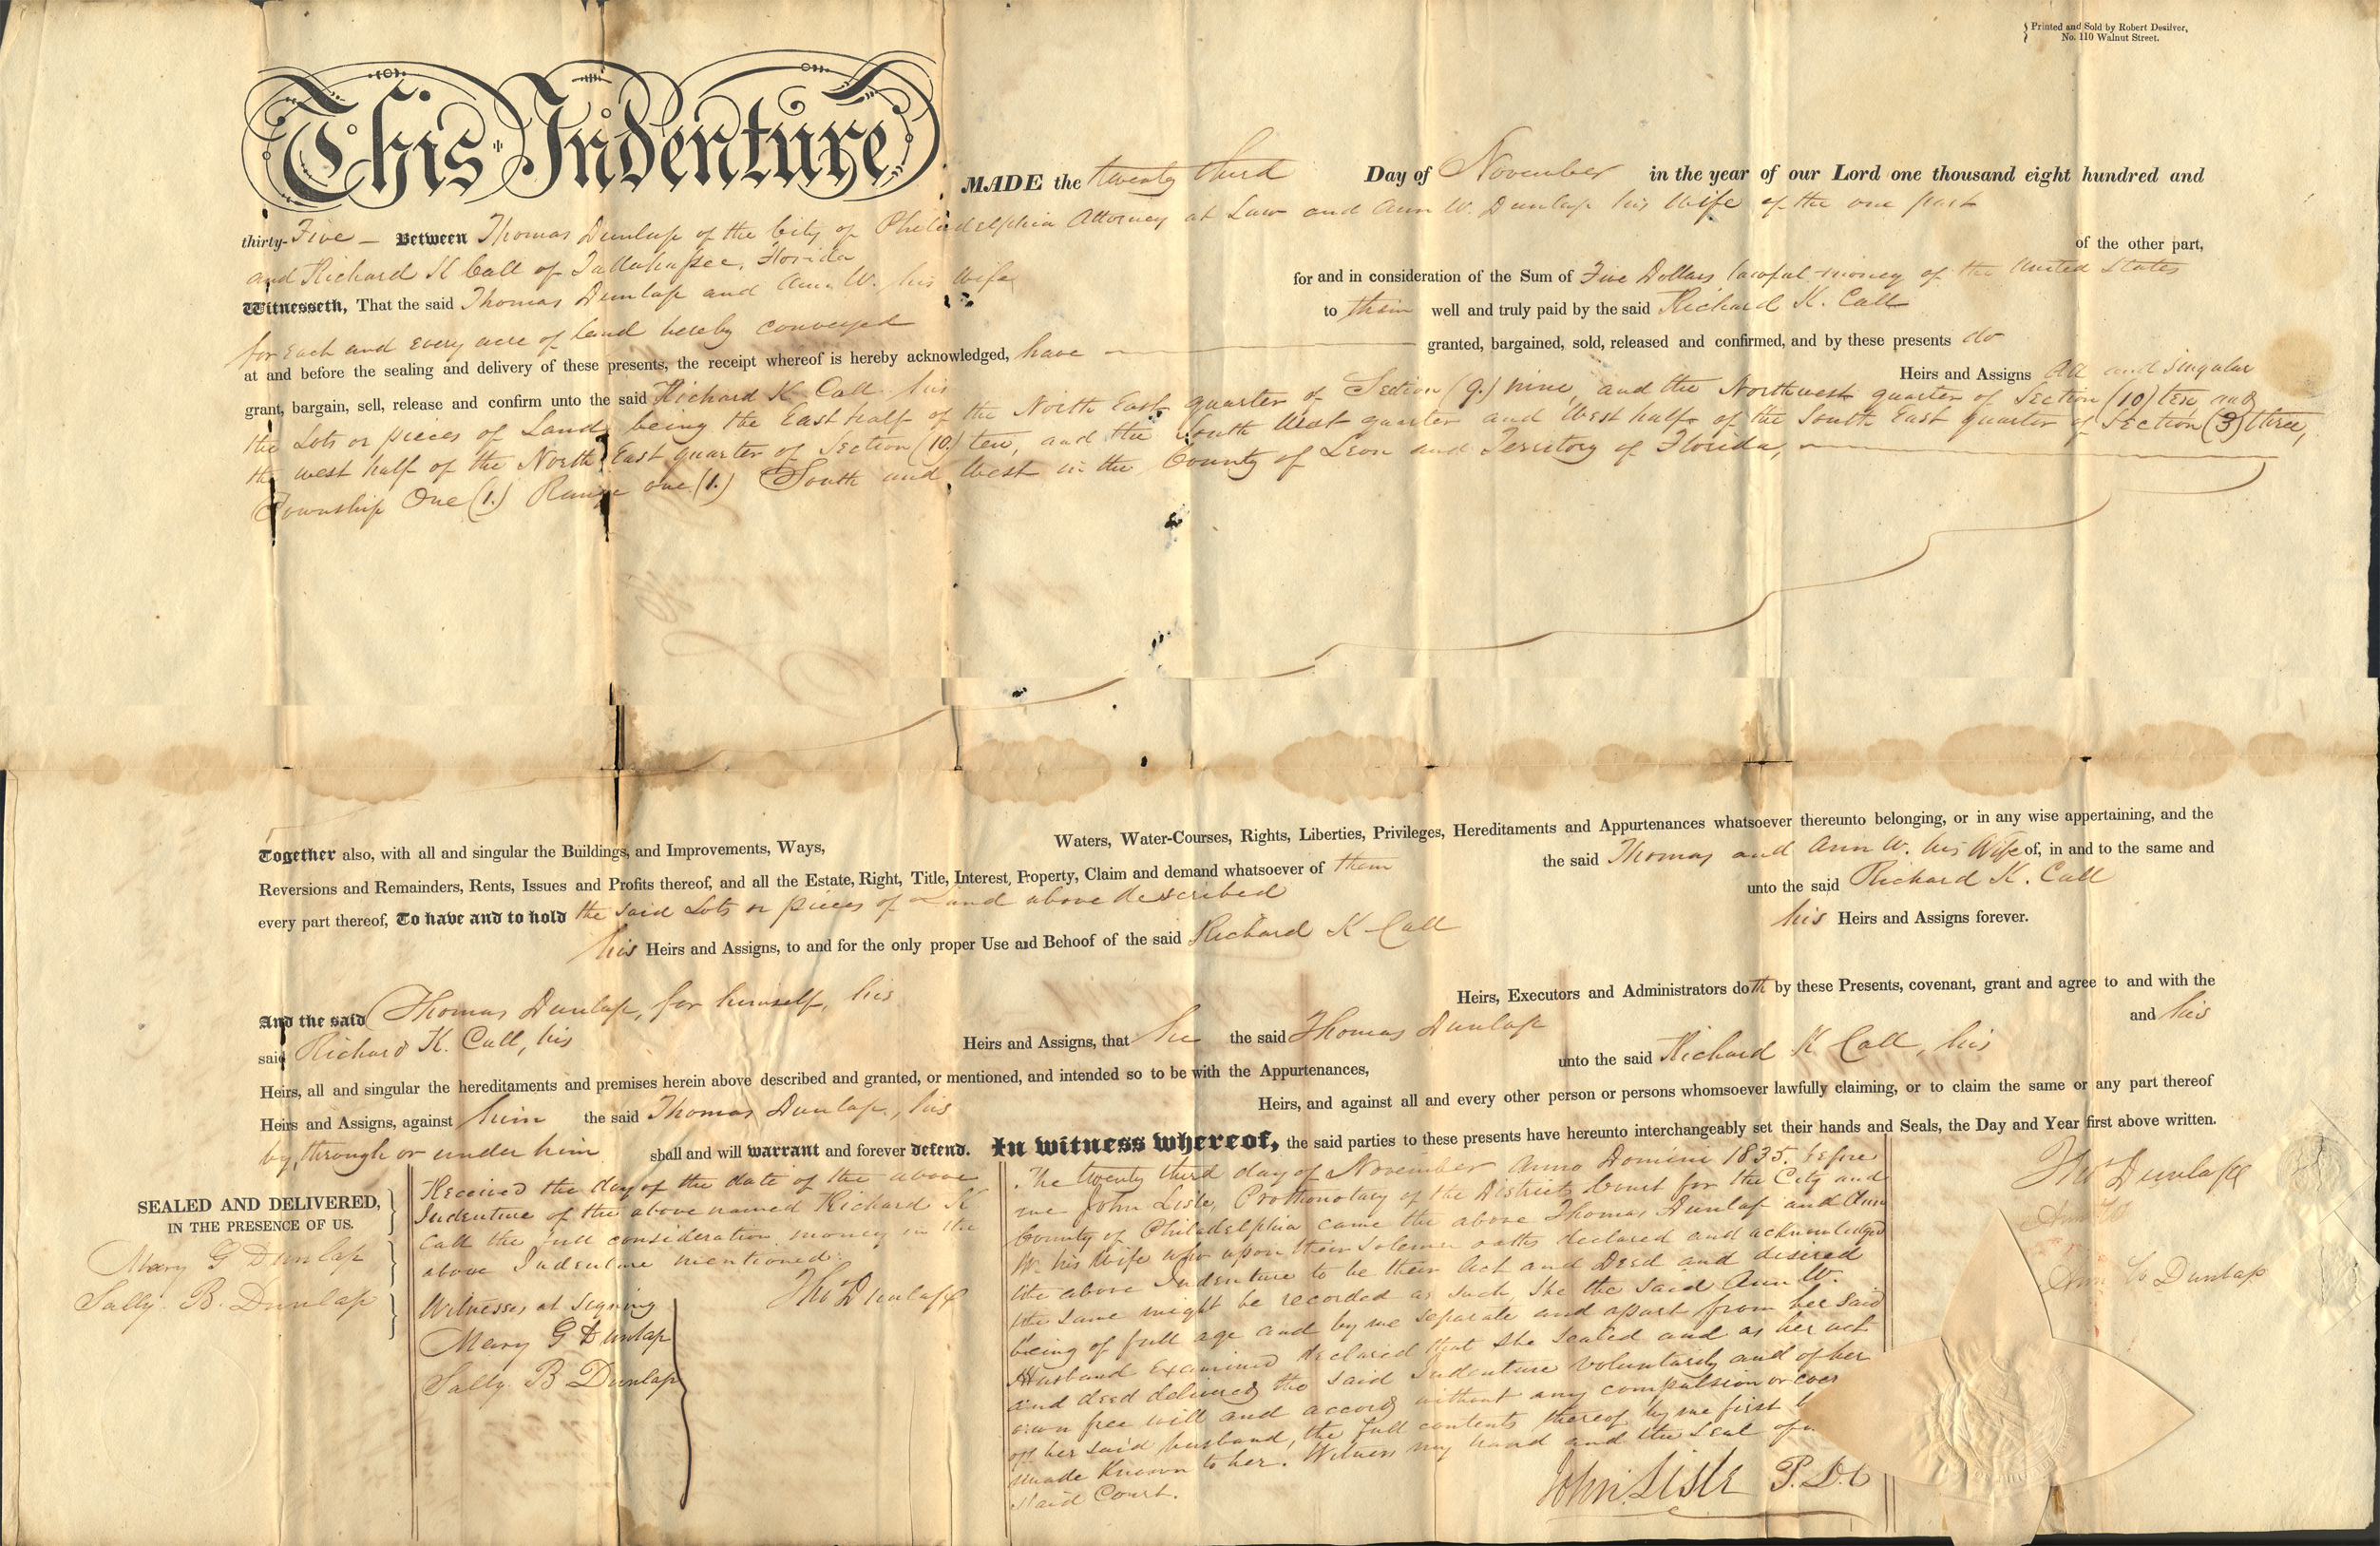 Printed and Sold by Robert Desilver,
No. 110 Walnut Street.
This Indenture MADE the twenty third Day of November in the year of our Lord one thousand eight hundred and
thirty-Five — Between Thomas Dunlap of the City of Philadelphia Attorney at Law and Ann W. Dunlap his Wife of the one part
and Richard K Call of Tallahassee, Florida of the other part,
Witnesseth, That the said Thomas Dunlap and Ann W. his Wife for and in consideration of the Sum of Five Dollars lawful money of the United States
for Each and Every acre of land hereby conveyed to them well and truly paid by the said Richard K. Call
at and before the sealing and delivery of these presents, the receipt whereof is hereby acknowledged, have granted, bargained, sold, released and confirmed, and by these presents do
grant, bargain, sell, release and confirm unto the said Richard K Call his Heirs and Assigns All and singular
the Lots or pieces of Land being the East half of the North East quarter of Section (9.) nine, and the Northwest quarter of Section (10) ten and
the west half of the North East quarter of Section (10.) ten, and the South West quarter and West half of the South East quarter of Section (3) three,
Township One (1.) Range one (1.) South and West in the County of Leon and Territory of Florida,
Together also, with all and singular the Buildings, and Improvements, Ways, Waters, Water-Courses, Rights, Liberties, Privileges, Hereditaments and Appurtenances whatsoever thereunto belonging, or in any wise appertaining, and the
Reversions and Remainders, Rents, Issues and Profits thereof, and all the Estate, Right, Title, Interest, Property, Claim and demand whatsoever of them the said Thomas and Ann W. his Wife of, in and to the same and
every part thereof, To have and to hold the said Lots or pieces of Land above described unto the said Richard K. Call
his Heirs and Assigns, to and for the only proper Use and Behoof of the said Richard K Call his Heirs and Assigns forever.
And the said Thomas Dunlap, for himself, his Heirs, Executors and Administrators doth by these Presents, covenant, grant and agree to and with the
said Richard K. Call, his Heirs and Assigns, that he the said Thomas Dunlap and his
Heirs, all and singular the hereditaments and premises herein above described and granted, or mentioned, and intended so to be with the Appurtenances, unto the said Richard K Call, his
Heirs and Assigns, against him the said Thomas Dunlap, his Heirs, and against all and every other person or persons whomsoever lawfully claiming, or to claim the same or any part thereof
by, through or under him shall and will warrant and forever defend. In witness whereof, the said parties to these presents have hereunto interchangeably set their hands and Seals, the Day and Year first above written.
SEALED AND DELIVERED,
IN THE PRESENCE OF US.
Mary G Dunlap
Sally B. Dunlap
Received the day of the date of the above
Indenture of the above named Richard K
Call the full consideration money in the
above Indenture mentioned.
Tho Dunlap
Witnesses at signing
Mary G Dunlap
Sally B Dunlap
The twenty third day of November Anno Domini 1835. before
me John Lisle, Prothonotary of the District Court for the City and
County of Philadelphia came the above Thomas Dunlap and Ann
W. his Wife who upon their solemn oaths declared and acknowledged
the above Indenture to be their Act and Deed and desired
the same might be recorded as such, She the said Ann W.
being of full age and by me separate and apart from her said
Husband Examined declared that she sealed and as her act
and deed delivered the said Indenture voluntarily and of her
own free will and accord without any compulsion or
of her said husband, the full contents thereof by me first
made Known to her. Witness my hand and the Seal of
said Court.
John Lisle P. D. C
Tho Dunlap
Ann W
Ann W Dunlap